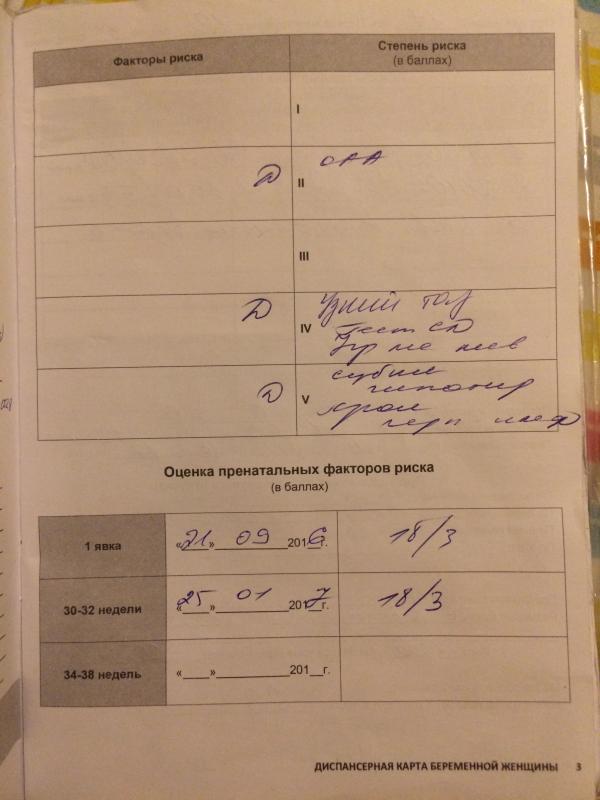 Факторы риска
Степень риска
(в баллах)
I
Д
II
ОАА
III
Д
IV
Узкий таз
Гест СД
Д
V
субкл
гипотир
хрон
герп инф
Оценка пренатальных факторов риска
(в баллах)
1 явка
«21» 09 2016г.
18/3
30-32 недели
«25» 01 2017г.
18/3
34-38 недель
«____»____________201__г.
ДИСПАНСЕРНАЯ КАРТА БЕРЕМЕННОЙ ЖЕНЩИНЫ 3